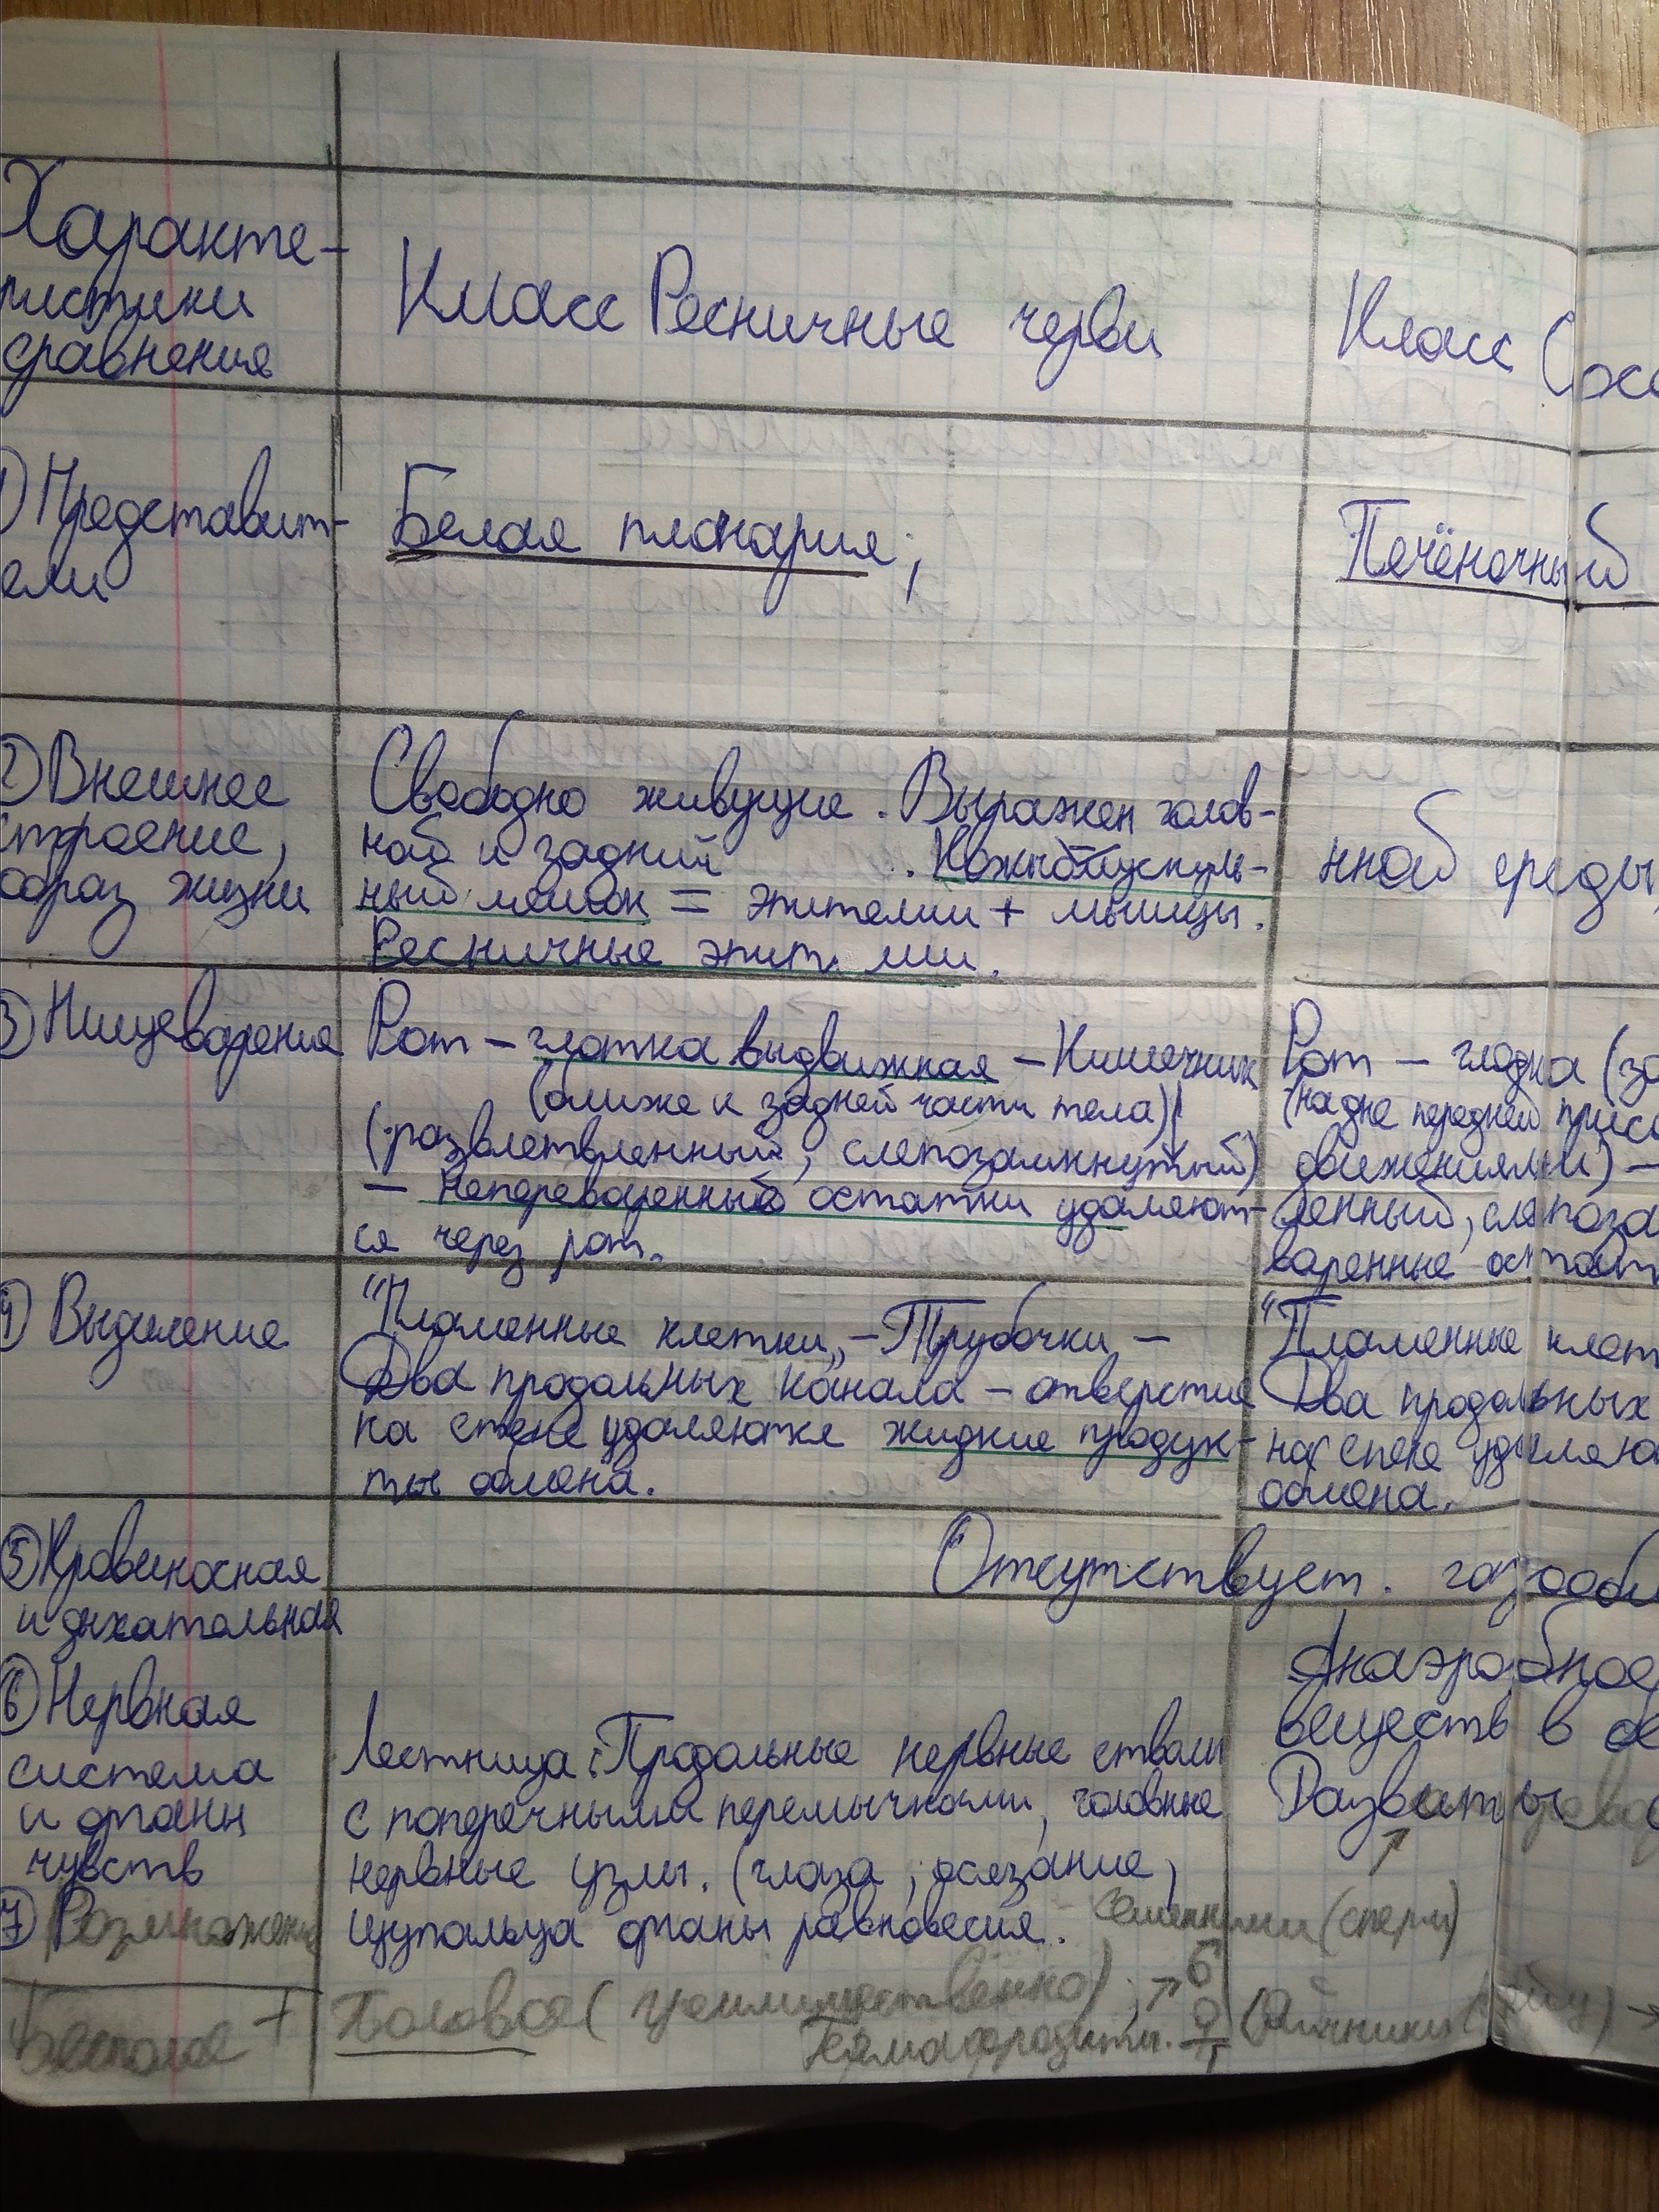 Характе-
ристики
сравнения
Класс Ресничные черви
Класс Сосс
1) Представит-
ели
Белая планария;
Печёночный
2) Внешнее
строение,
образ жизни
Свободно живущие. Выражен голов-
ной и задний . Кожномускуль-
ный мешок = эпителии + мышцы.
Ресничные эпит ми.
нной среды,
3) Пищеварение
Рот – глотка выдвижная – Кишечник
(ближе к задней части тела)
(разветвленный, слепозамкнутый)
– Непереваренный остатки удаляют-
ся через рот.
Рот – глотка (за
(на дне передней присо
движениями) –
ленный, слепоза
варенные остат
4) Выделение
"Пламенные клетки" – Трубочки –
Два продольных канала – отверстие
на спене удаляются жидкие продук-
ты обмена.
"Пламенные клет
Два продольных
на спене удаляю
обмена.
5) Кровеносная
и дыхательная
Отсутствует. газооб
6) Нервная
система
и органы
чувств
Лестница: Продольные нервные стволы
с поперечными перемычками, головные
нервные узлы. (глаза, осязание,
щупальца органы равновесия.
Анаэробное
веществ в
Развиты
7) Размножение
Бесполое +
Половое (преимущественно)
Гермафродиты.
семенники (сперм)
(Яичники